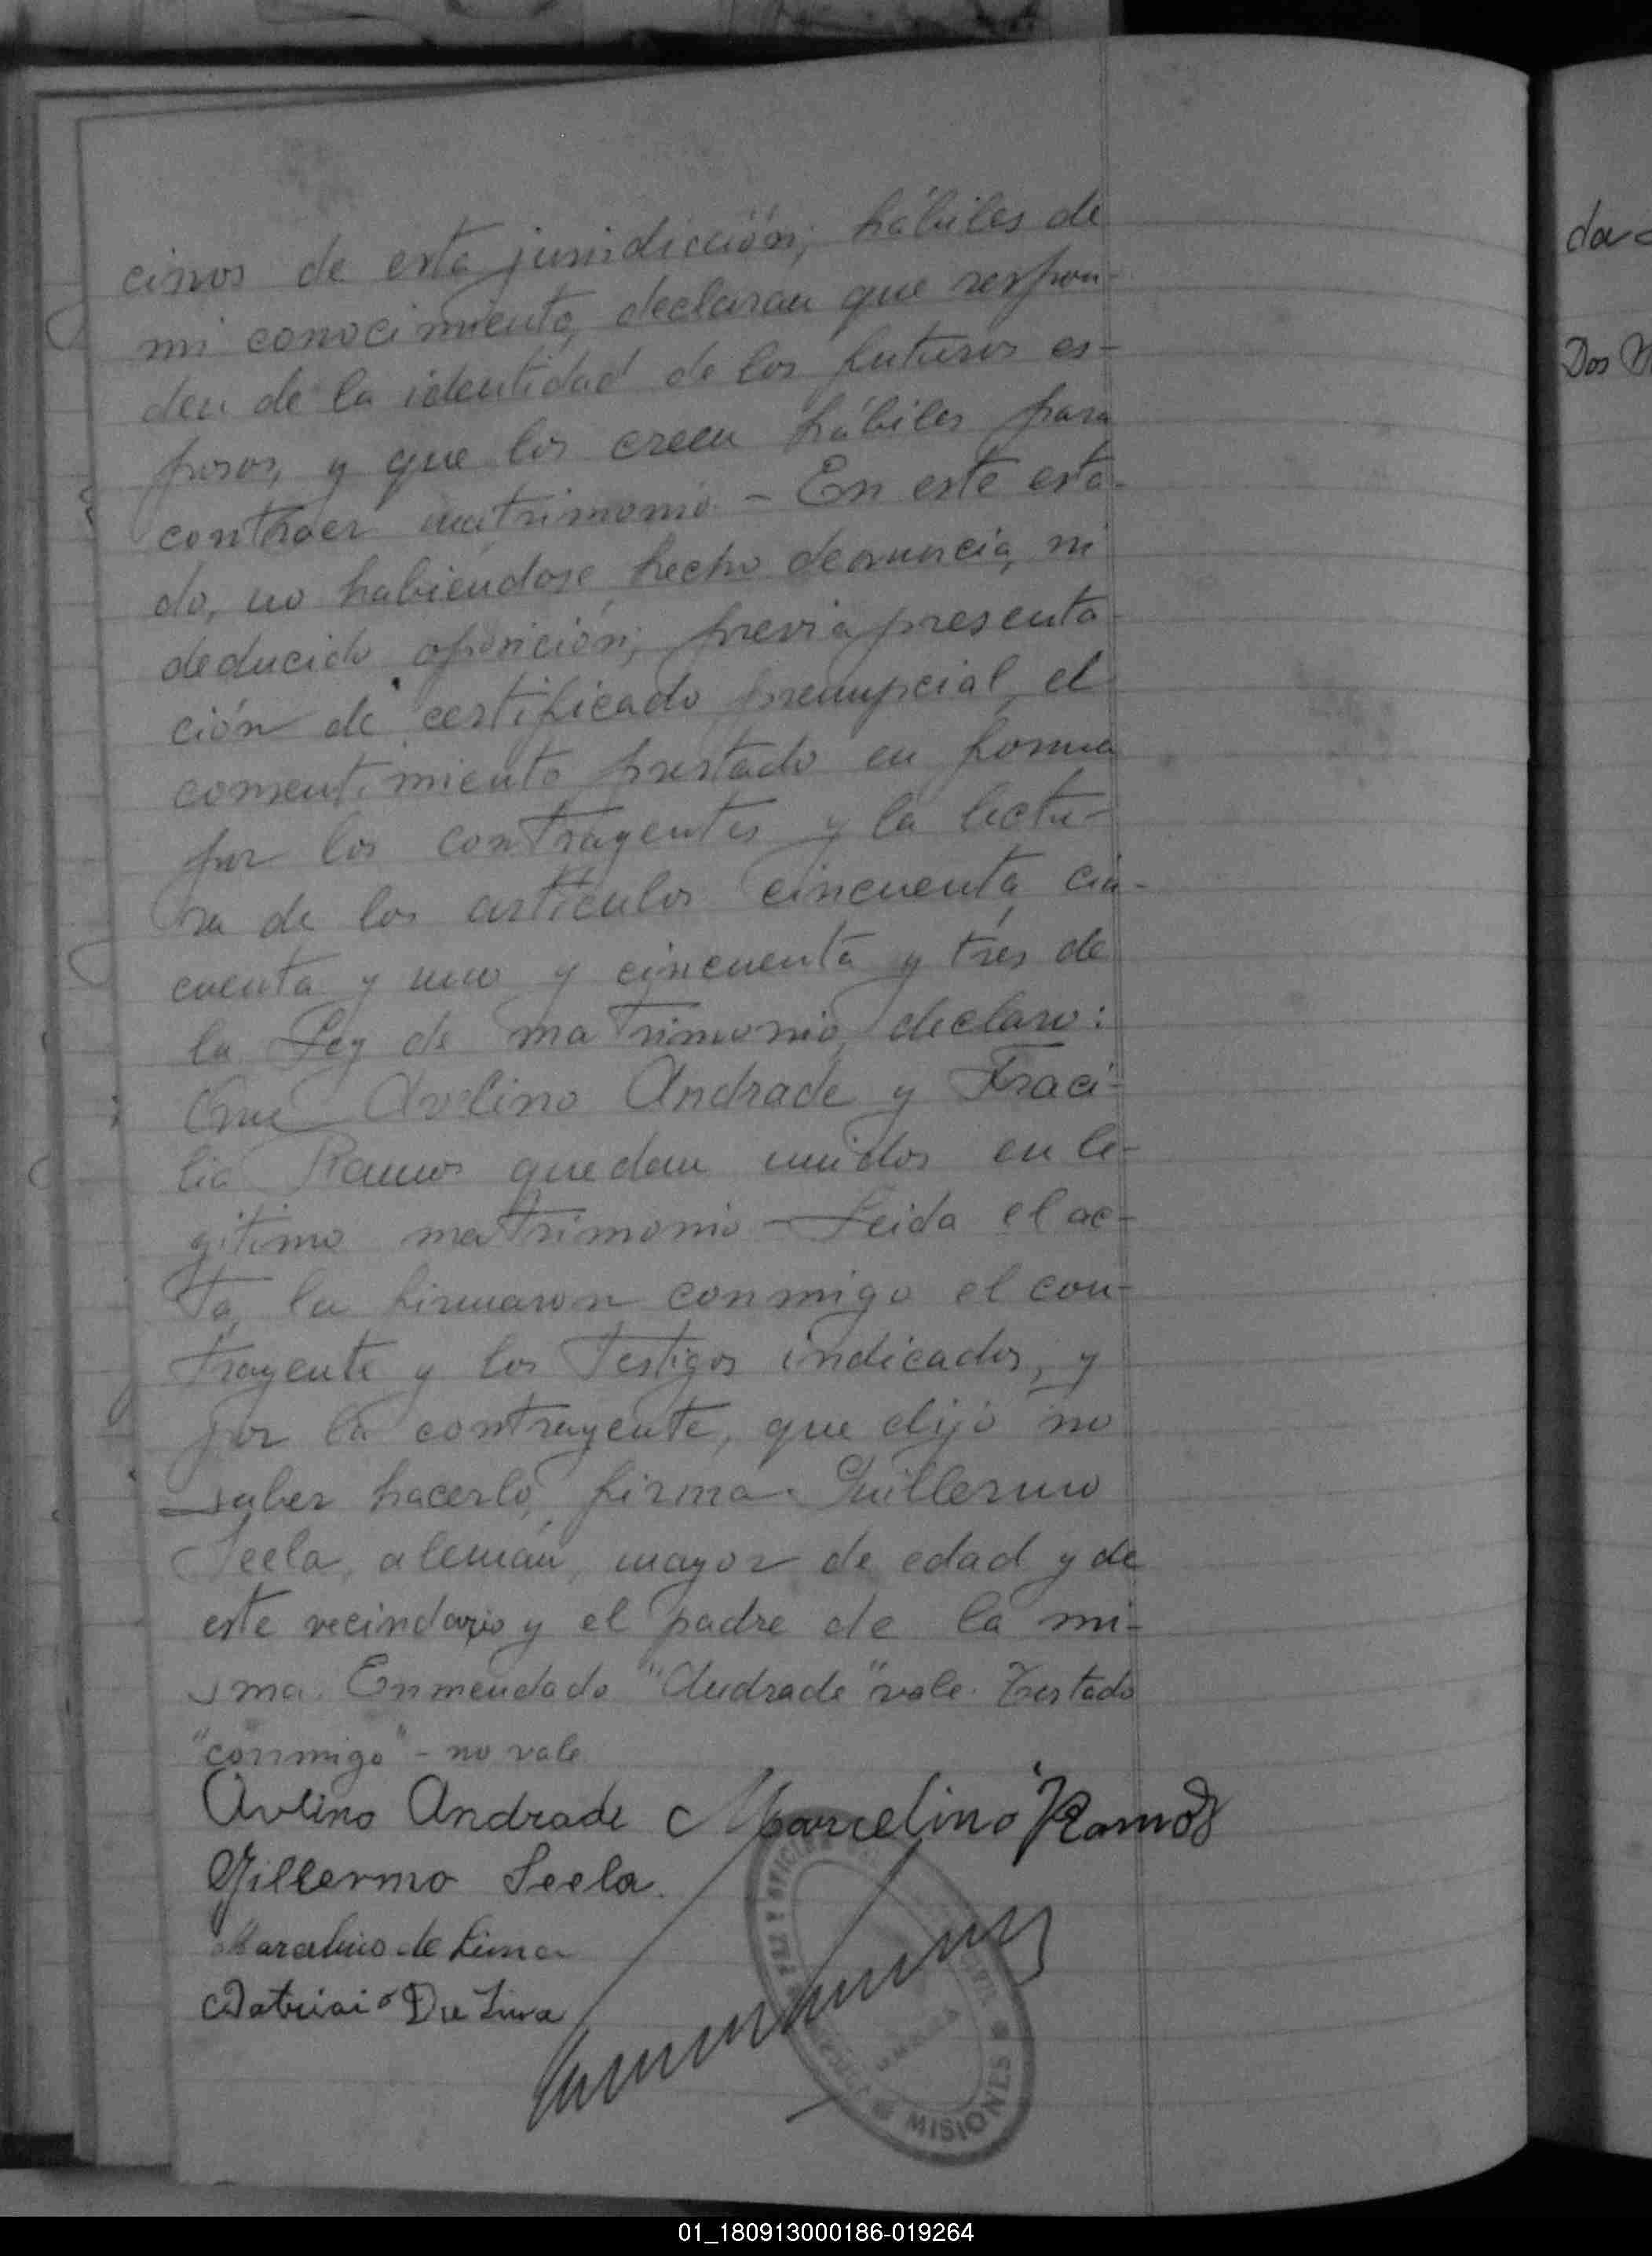 cinos de esta jurisdicción, hábiles de
mi conocimiento, declaran que respon-
den de la identidad de los futuros es-
posos, y que los creen hábiles para
contraer matrimonio - En este esta-
do, no habiéndose hecho denuncia, ni
deducido oposición, previa presenta-
ción de certificado prenupcial, el
consentimiento prestado en forma
por los contrayentes y la lectu-
ra de los artículos cincuenta, cin-
cuenta y uno y cincuenta y tres de
la Ley de matrimonio, declaro:
Que Avelino Andrade y Fraci-
lia Ramos quedan unidos en le-
gitimo matrimonio - Leida el ac-
ta, la firmaron conmigo el con-
trayente y los testigos indicados, y
por la contrayente, que dijo no
saber hacerlo, firma Guillermo
Seela, alemán, mayor de edad y de
este vecindario y el padre de la mi-
sma. Enmendado "Andrade" vale. Testado
"conmigo" - no vale
Avlino Andrade Marcelino Ramos
Gillermo Seela.
de Lima
De Lima
PAZ Y OFICIAL
CIVIL
MISIONES
da
Dos
01_180913000186-019264